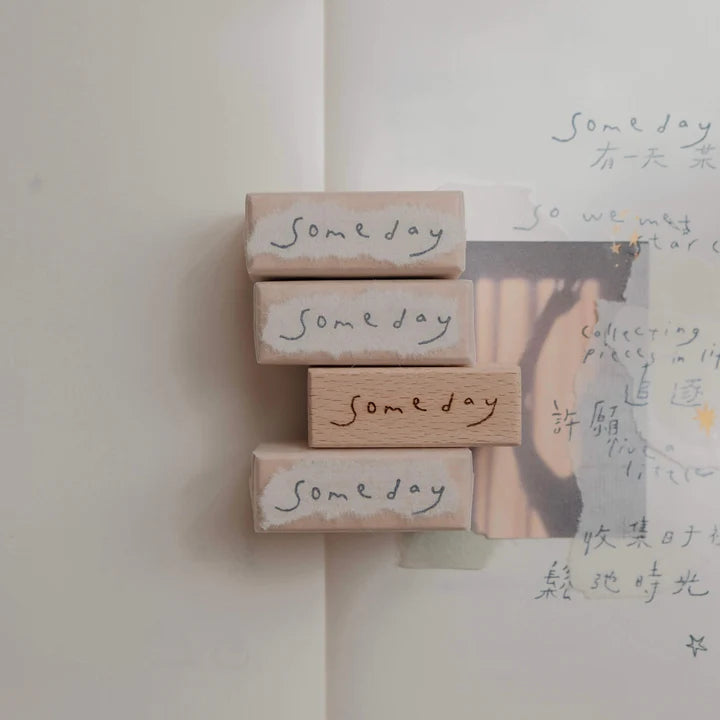 someday
someday
someday
someday
someday
有一天
so we met
star
collecting
pieces in
追逐
許願
live a
little
收集时
鬆弛時光